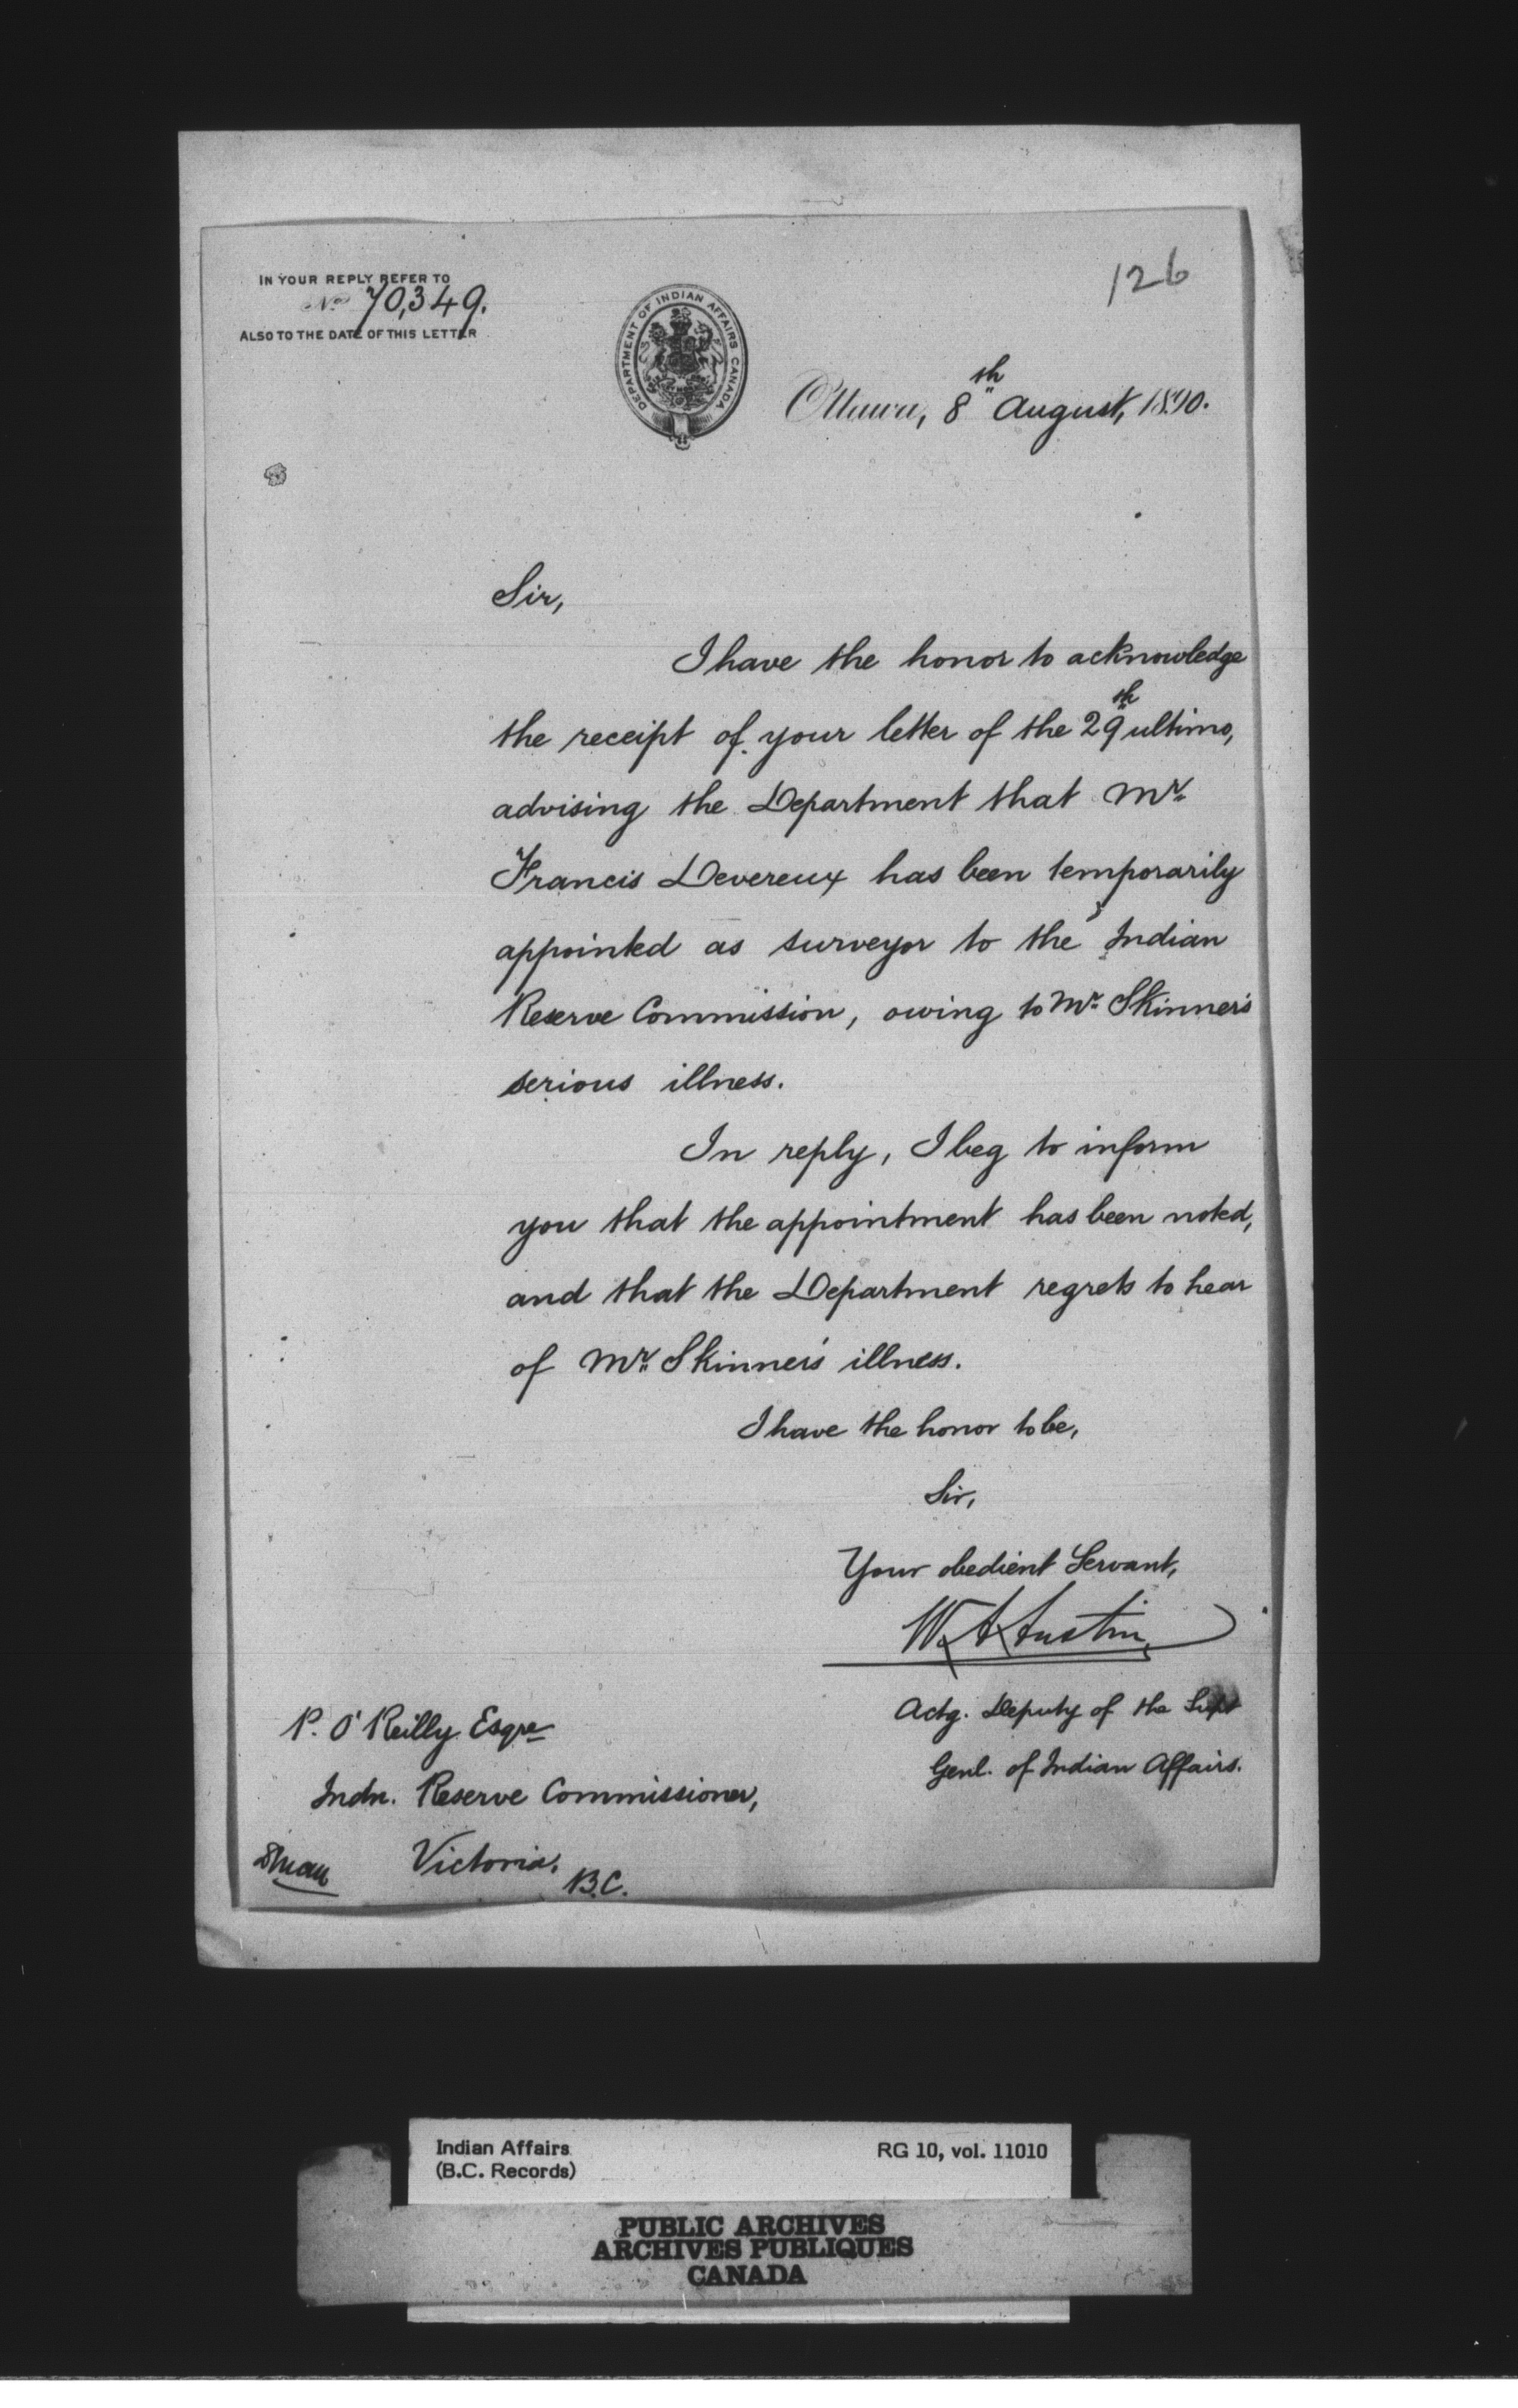 IN YOUR REPLY REFER TO
No 70,349.
ALSO TO THE DATE OF THIS LETTER
DEPARTMENT OF INDIAN AFFAIRS CANADA
126
Ottawa, 8th August, 1890.
Sir,
I have the honor to acknowledge
the receipt of your letter of the 29th ultimo,
advising the Department that Mr.
Francis Devereux has been temporarily
appointed as surveyor to the Indian
Reserve Commission, owing to Mr. Skinner's
serious illness.
In reply, I beg to inform
you that the appointment has been noted,
and that the Department regrets to hear
of Mr. Skinner's illness.
I have the honor to be,
Sir,
Your obedient Servant,
W. A. Austin
Actg. Deputy of the Supt
Genl. of Indian Affairs.
P. O'Reilly Esqre
Indn. Reserve Commissioner,
Victoria,
B.C.
Indian Affairs
(B.C. Records)
RG 10, vol. 11010
PUBLIC ARCHIVES
ARCHIVES PUBLIQUES
CANADA